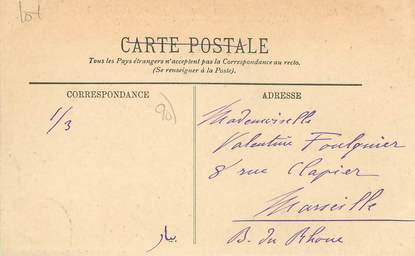 CARTE POSTALE
Tous les Pays étrangers n'acceptent pas la Correspondance au recto.
(Se renseigner à la Poste).
CORRESPONDANCE
ADRESSE
1/3
90
Mademoiselle
Valentine Foulquier
8 rue Clapier
Marseille
B. du Rhone